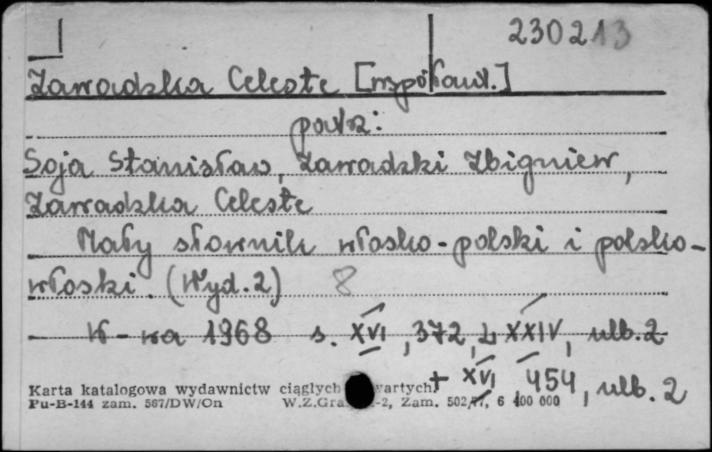 230213
Zawadzka Celeste [współaut.]
patrz:
Soja Stanisław, Zawadzki Zbigniew,
Zawadzka Celeste
Mały słownik włosko-polski i polsko-
włoski. (Wyd. 2) 8
W-wa 1968 s. XVI, 372, XXIV, nlb. 2
+ XVI, 454, nlb. 2
Karta katalogowa wydawnictw ciągłych
Pu-B-144 zam. 567/DW/On W.Z.Gra -2, Zam. 502/77, 6 400 000